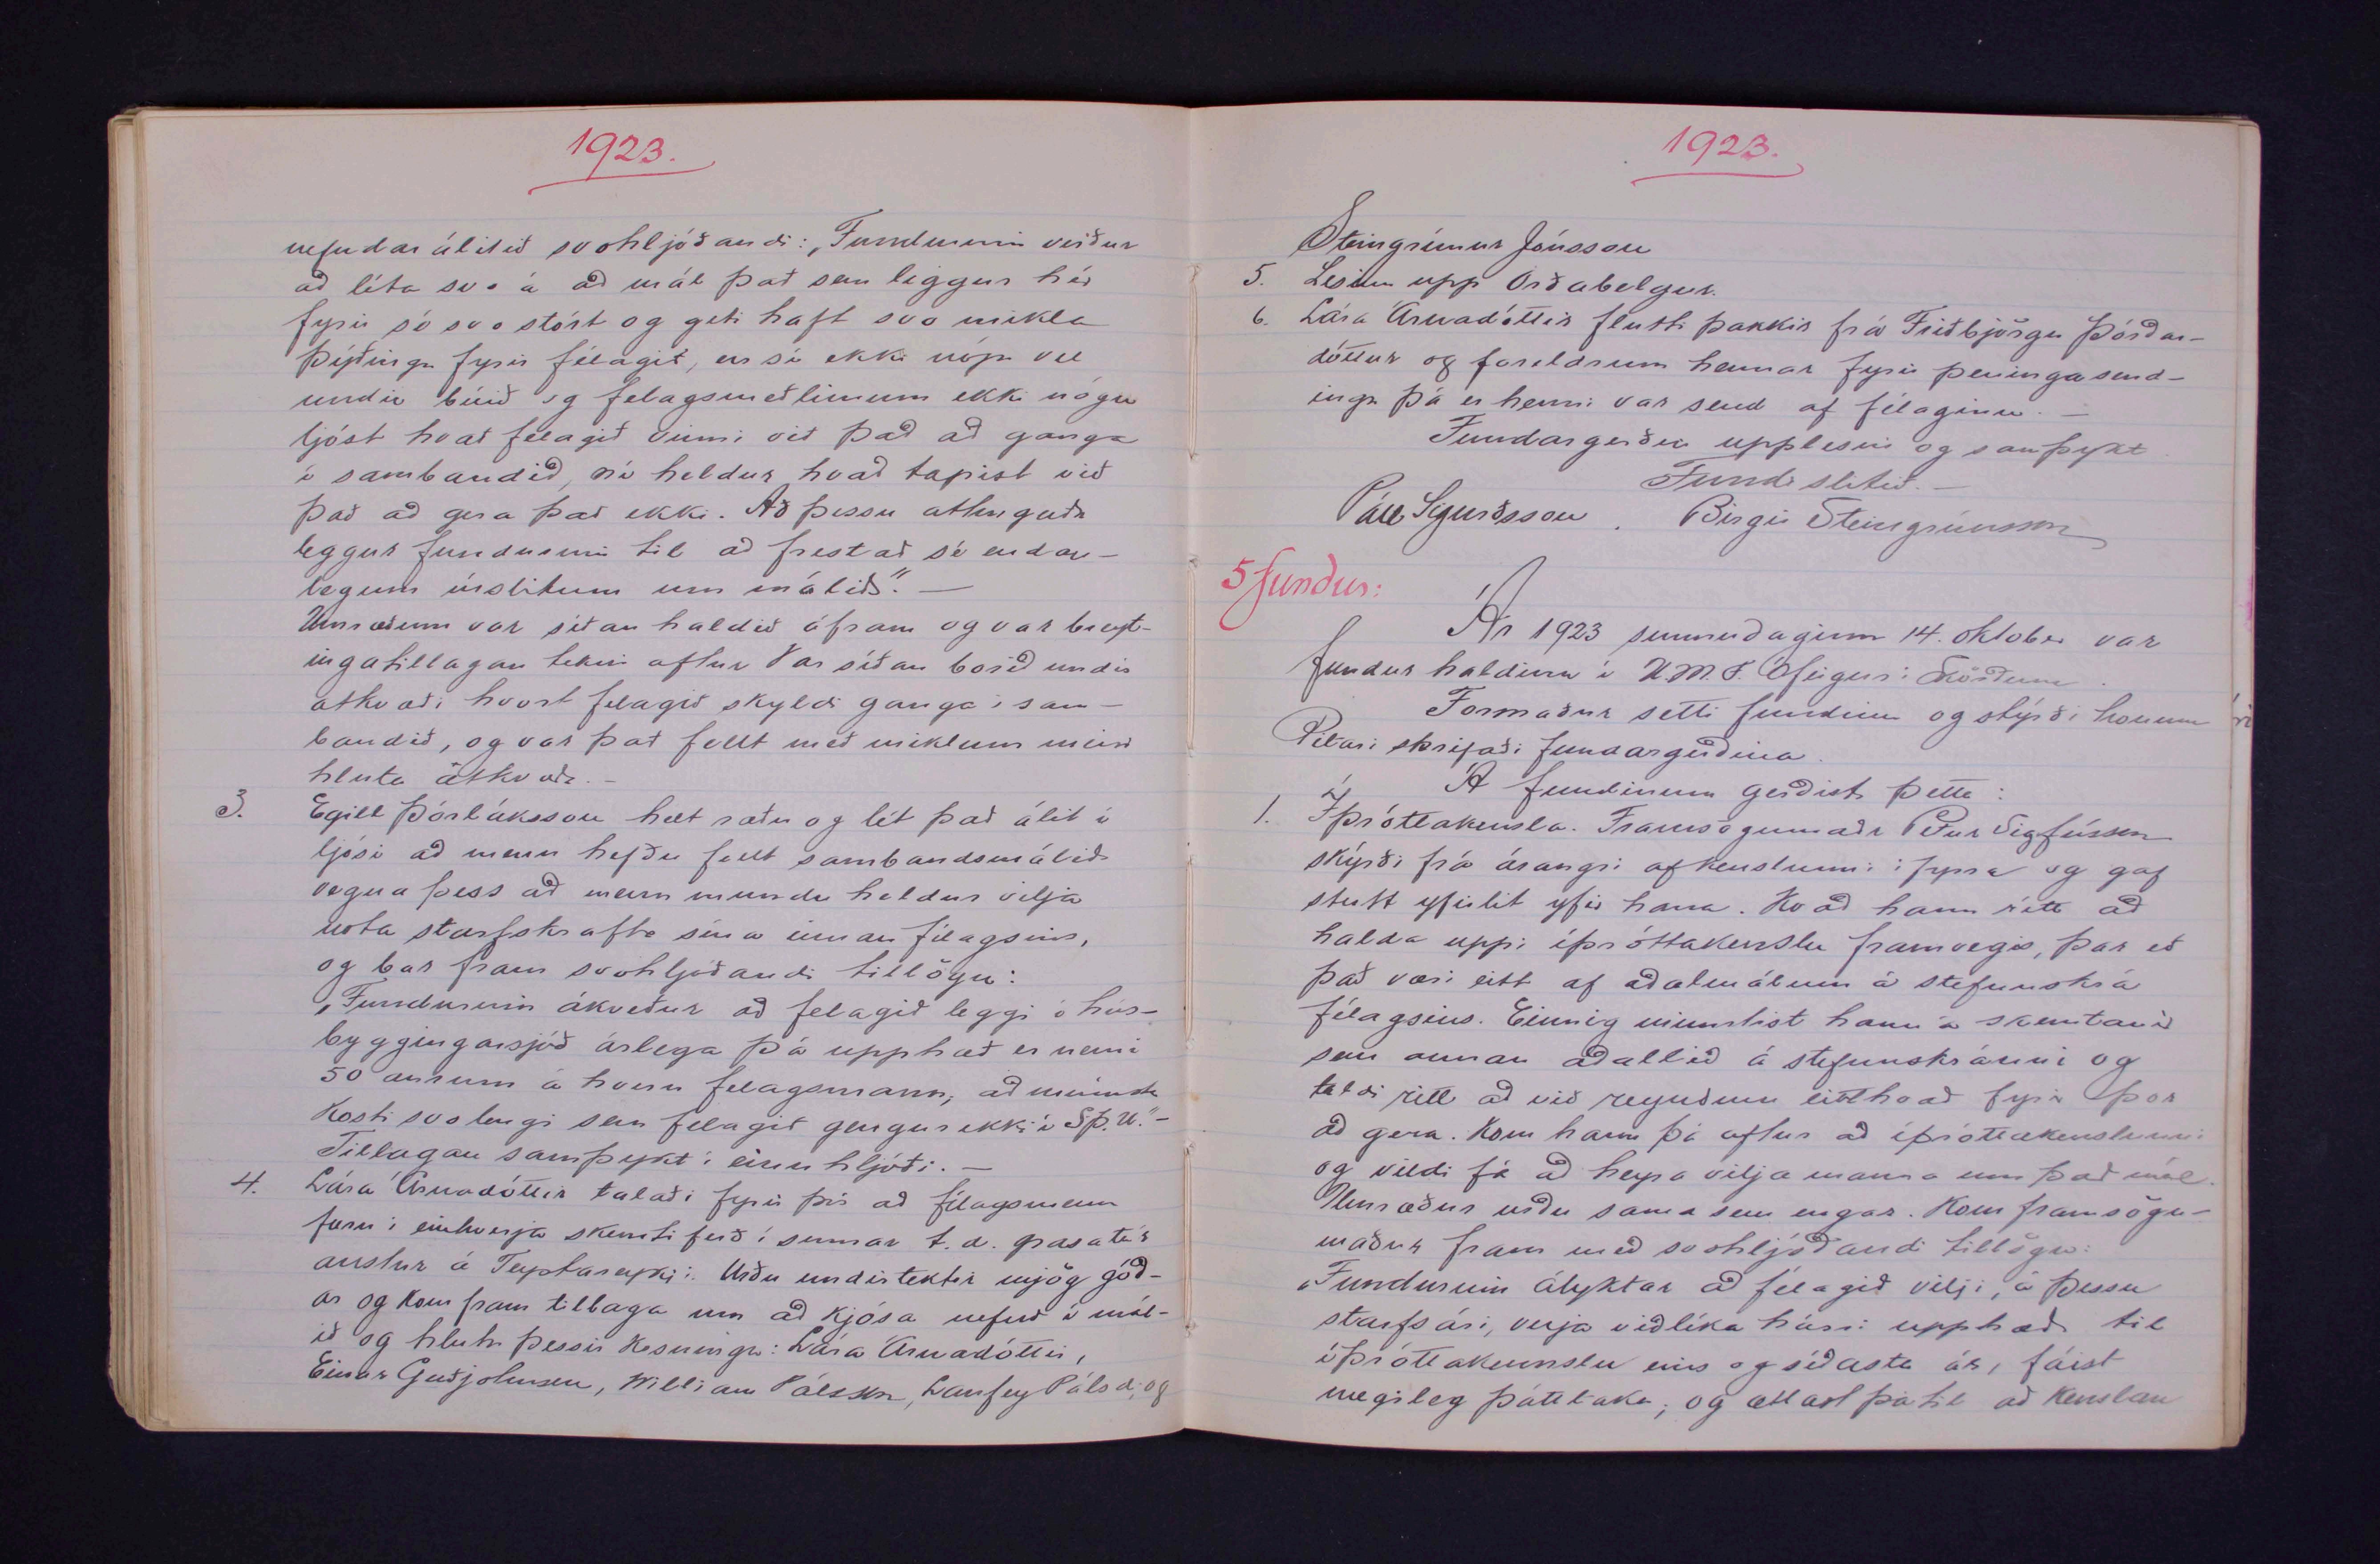 1923.
nefndarálitið svohljóðandi: „Fundurinn verður
að líta svo á að mál það sem liggur hér
fyrir sé svo stórt og geti haft svo mikla
þýðingu fyrir félagið, en sé ekki nóg vel
undir búið og felagsmeðlimum ekki nógu
ljóst hvað félagið vinni við það að ganga
í sambandið, né heldur hvað tapist við
það að gera það ekki. Að þessu athuguðu
leggur fundurinn til að frestað sé endan-
legum úrslitum um málið". —
Umræðum var síðan haldið áfram og var breyt-
ingatillagan tekin aftur Var síðan borið undir
atkvæði hvort felagið skyldi ganga í sam-
bandið, og var það fellt með miklum meiri
hluta atkvæða. –
3. Egill Þorláksson helt ræðu og lét það álit í
ljósi að menn hefðu fellt sambandsmálið
vegna þess að menn mundu heldur vilja
nota starfskrafta sína innan félagsins,
og bar fram svohljóðandi tillögu:
„Fundurinn ákveður að felagið leggi í hús-
byggingarsjóð árlega þá upphæð er nemi
50 aurum á hvern felagsmann, að minnsta
Kosti svo lengi sem felagið gengur ekki í S.þ.U." –
Tillagan samþykt í einu hljóði. —
4. Lára Árnadóttir talaði fyrir því að félagsmenn
færu í einhverja skemtiferð í sumar t.d. grasatúr
austur á Þeystareyki. Urðu undirtektir mjög góð-
ar og kom fram tillaga um að kjósa nefnd í mál-
ið og hlutu þessir kosningu: Lára Árnadóttir,
Einar Guðjohnsen, William Pálsson, Laufey Pálsd, og
1923.
Steingrímur Jónsson
5. Lesinn upp Orðabelgur.
6. Lára Árnadóttir flutti þakkir frá Friðbjörgu Þórðar-
dóttur og foreldrum hennar fyrir peningasend-
ingu þá er henni var send af félaginu. —
Fundargerðin upplesin og samþykt
Fundi slitið. —
Páll Sigurðsson. Birgir Steingrímsson
5 fundur:
Ár 1923 sunnudaginn 14. oktober var
fundur haldinn í U.M.F. Ófeigur í Skörðum.
Formaður setti fundinn og stýrði honum
Ritari skrifaði fundargerðina.
Á fundinum gerðist þetta:
1. Íþróttakensla. Framsögumaður Pétur Sigfússon
skýrði frá árangri af kenslunni í fyrra og gaf
stutt yfirlit yfir hana. Kvað hann rétt að
halda uppi íþróttakenslu framvegis, þar eð
það væri eitt af aðalmálum á stefnuskrá
félagsins. Einnig minntist hann á skemtanir
sem annan aðallið á stefnuskránni og
taldi rétt að við reyndum eitthvað fyrir þær
að gera. Kom hann þá aftur að íþróttakenslunni
og vildi fá að heyra vilja manna um það mál.
Umræður urðu sama sem engar. Kom framsögu-
maður fram með svohljóðandi tillögu:
„Fundurinn ályktar að félagið vilji, á þessu
starfsári, verja viðlíka hárri upphæð til
íþróttakennslu eins og síðasta ár, fáist
nægileg þátttaka, og ætlast þá til að kenslan